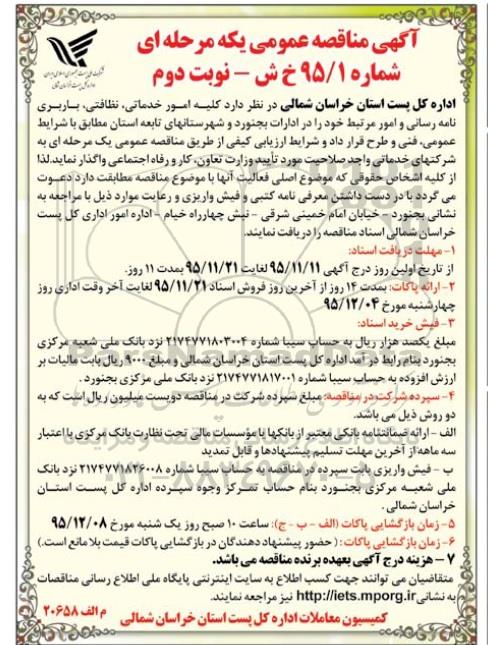 آگهی مناقصه عمومی یکه مرحله ای
شماره ۹۵/۱ خ ش – نوبت دوم
اداره کل پست استان خراسان شمالی در نظر دارد کلیه امور خدماتی، نظافتی، باربری
نامه رسانی و امور مرتبط خود را در ادارات بجنورد و شهرستانهای تابعه استان مطابق با شرایط
عمومی، فنی و طرح قرار داد و شرایط ارزیابی کیفی از طریق مناقصه عمومی یک مرحله ای به
شرکتهای خدماتی واجد صلاحیت مورد تأیید وزارت تعاون، کار و رفاه اجتماعی واگذار نماید.لذا
از کلیه اشخاص حقوقی که موضوع اصلی فعالیت آنها با موضوع مناقصه مطابقت دارد دعوت
می گردد با در دست داشتن معرفی نامه کتبی و فیش واریزی و رعایت موارد ذیل با مراجعه به
نشانی بجنورد – خیابان امام خمینی شرقی – نبش چهارراه خیام – اداره امور اداری کل پست
خراسان شمالی اسناد مناقصه را دریافت نمایند.
۱- مهلت دریافت اسناد:
از تاریخ اولین روز درج آگهی ۹۵/۱۱/۱۱ لغایت ۹۵/۱۱/۲۱ بمدت ۱۱ روز.
۲- ارائه پاکات: بمدت ۱۴ روز از آخرین روز فروش اسناد ۹۵/۱۱/۲۱ لغایت آخر وقت اداری روز
چهارشنبه مورخ ۹۵/۱۲/۰۴
۳- فیش خرید اسناد:
مبلغ یکصد هزار ریال به حساب سیبا شماره ۲۱۷۴۷۷۱۸۰۳۰۰۴ نزد بانک ملی شعبه مرکزی
بجنورد بنام رابط در آمد اداره کل پست استان خراسان شمالی و مبلغ ۹۰۰۰ ریال بابت مالیات بر
ارزش افزوده به حساب سیبا شماره ۲۱۷۴۷۷۱۸۱۷۰۰۱ نزد بانک ملی مرکزی بجنورد .
۴- سپرده شرکت در مناقصه: مبلغ سپرده شرکت در مناقصه دویست میلیون ریال است که به
دو روش ذیل می باشد.
الف – ارائه ضمانتنامه بانکی معتبر از بانکها یا مؤسسات مالی تحت نظارت بانک مرکزی با اعتبار
سه ماهه از آخرین مهلت تسلیم پیشنهادها و قابل تمدید
ب – فیش واریزی بابت سپرده در مناقصه به حساب سیبا شماره ۲۱۷۴۷۷۱۸۲۶۰۰۸ نزد بانک
ملی شعبه مرکزی بجنورد بنام حساب تمرکز وجوه سپرده اداره کل پست استان
خراسان شمالی .
۵- زمان بازگشایی پاکات (الف – ب – ج): ساعت ۱۰ صبح روز یک شنبه مورخ ۹۵/۱۲/۰۸
۶- زمان بازگشایی پاکات : ( حضور پیشنهاد دهندگان در بازگشایی پاکات قیمت بلامانع است.)
۷ – هزینه درج آگهی بعهده برنده مناقصه می باشد.
متقاضیان می توانند جهت کسب اطلاع به سایت اینترنتی پایگاه ملی اطلاع رسانی مناقصات
به نشانی http://iets.mporg.ir نیز مراجعه نمایند.
م الف ۲۰۶۵۸
کمیسیون معاملات اداره کل پست استان خراسان شمالی